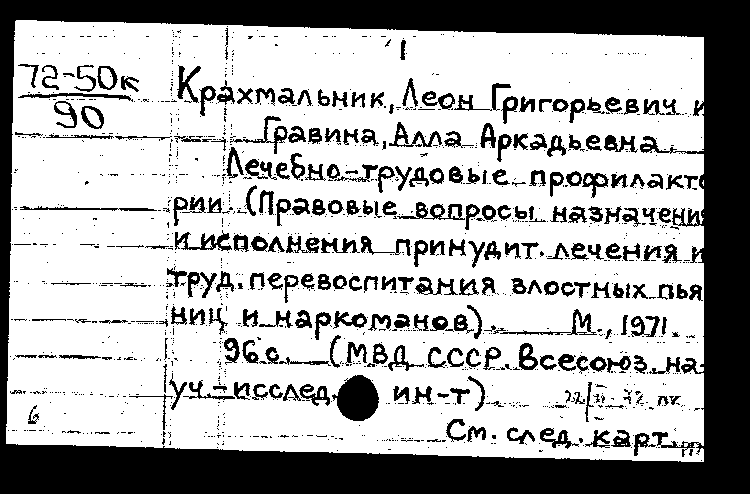 1
72-50к
90
Крахмальник, Леон Григорьевич и
Гравина, Алла Аркадьевна.
Лечебно-трудовые профилакто
рии. (Правовые вопросы назначения
и исполнения принудит. лечения и
труд. перевоспитания злостных пья
ниц и наркоманов). М., 1971.
96 с. (МВД СССР. Всесоюз. на-
уч.-исслед. ин-т)
22/II-72 пк
6
См. след. карт.